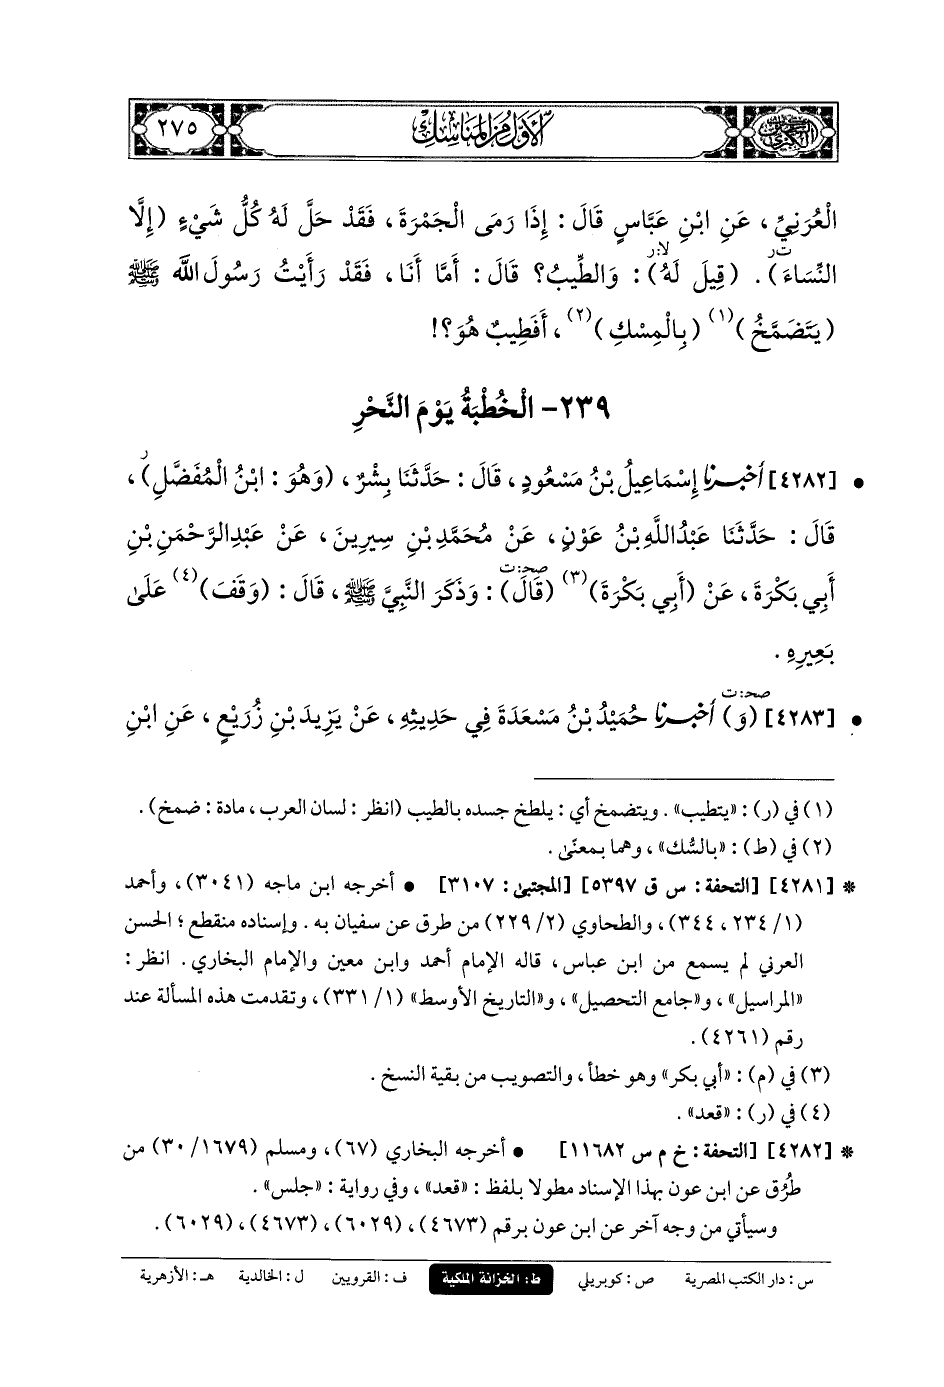 السنن الكبرى الأول من المناسك ٢٧٥
الْعُرَنِيِّ، عَنِ ابْنِ عَبَّاسٍ قَالَ: إِذَا رَمَى الْجَمْرَةَ، فَقَدْ حَلَّ لَهُ كُلُّ شَيْءٍ (إِلَّا
لا:ر ت ر
النِّسَاءَ). (قِيلَ لَهُ): وَالطِّيبُ؟ قَالَ: أَمَّا أَنَا، فَقَدْ رَأَيْتُ رَسُولَ اللَّه ﷺ
(يَتَضَمَّخُ)(١) (بِالْمِسْكِ)(٢)، أَفَطِيبٌ هُوَ؟!
٢٣٩- الْخُطْبَةُ يَوْمَ النَّحْرِ
ر
• [٤٢٨٢] أَخْبَرَنَا إِسْمَاعِيلُ بْنُ مَسْعُودٍ، قَالَ: حَدَّثَنَا بِشْرٌ، (وَهُوَ: ابْنُ الْمُفَضَّلِ)،
قَالَ: حَدَّثَنَا عَبْدُاللَّهِ بْنُ عَوْنٍ، عَنْ مُحَمَّدِ بْنِ سِيرِينَ، عَنْ عَبْدِالرَّحْمَنِ بْنِ
صحـ: ت
أَبِي بَكْرَةَ، عَنْ (أَبِي بَكْرَةَ)(٣) (قَالَ): وَذَكَرَ النَّبِيَّ ﷺ، قَالَ: (وَقَفَ)(٤) عَلَى
بَعِيرِهِ.
صحـ: ت
• [٤٢٨٣] (وَ) أَخْبَرَنَا حُمَيْدُ بْنُ مَسْعَدَةَ فِي حَدِيثِهِ، عَنْ يَزِيدَ بْنِ زُرَيْعٍ، عَنِ ابْنِ
(١) في (ر): «يتطيب». ويتضمخ أي: يلطخ جسده بالطيب (انظر: لسان العرب، مادة: ضمخ).
(٢) في (ط): «بالسُّك»، وهما بمعنًى.
* [٤٢٨١] [التحفة: س ق ٥٣٩٧] [المجتبى: ٣١٠٧] • أخرجه ابن ماجه (٣٠٤١)، وأحمد
(١/ ٢٣٤، ٣٤٤)، والطحاوي (٢/ ٢٢٩) من طرق عن سفيان به. وإسناده منقطع؛ الحسن
العرني لم يسمع من ابن عباس، قاله الإمام أحمد وابن معين والإمام البخاري. انظر:
«المراسيل»، و«جامع التحصيل»، و«التاريخ الأوسط» (١/ ٣٣١)، وتقدمت هذه المسألة عند
رقم (٤٢٦١).
(٣) في (م): «أبي بكر» وهو خطأ، والتصويب من بقية النسخ.
(٤) في (ر): «قعد».
* [٤٢٨٢] [التحفة: خ م س ١١٦٨٢] • أخرجه البخاري (٦٧)، ومسلم (١٦٧٩/ ٣٠) من
طُرُق عن ابن عون بهذا الإسناد مطولا بلفظ: «قعد»، وفي رواية: «جلس».
وسيأتي من وجه آخر عن ابن عون برقم (٤٦٧٣)، (٦٠٢٩)، (٤٦٧٣)، (٦٠٢٩).
س: دار الكتب المصرية ص: كوبريلي ط: الخزانة الملكية ف: القرويين ل: الخالدية هـ: الأزهرية